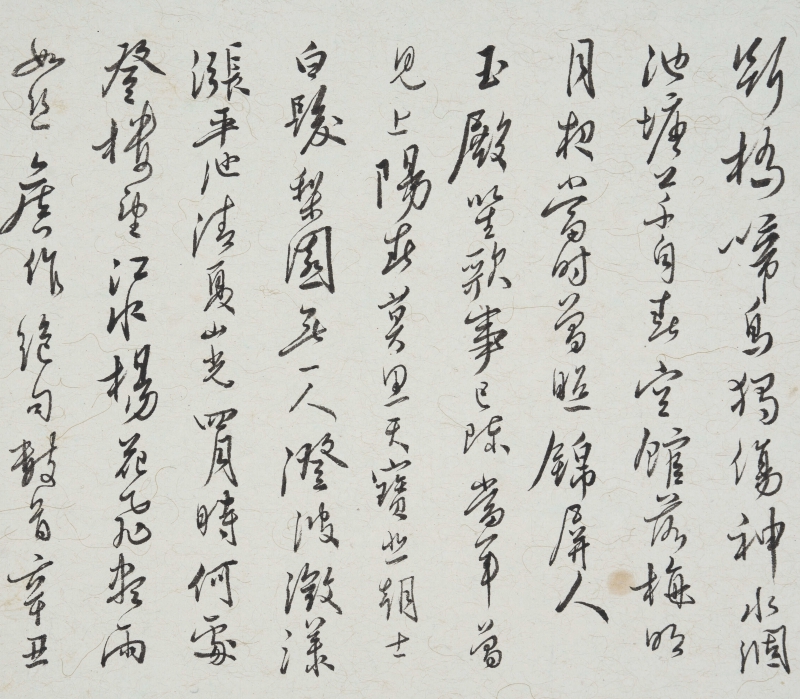 斷橋啼鳥獨傷神水涸
池塘草自春空館落梅明
月夜當時曾照錦屏人
玉殿笙歌事已陳當年曾
見上陽春莫思天寶朝士
白髮梨園無一人澄波漾
漲平池清夏山光四月時何處
登樓望江水楊花飛盡雨
如絲舊作絕句數首辛丑